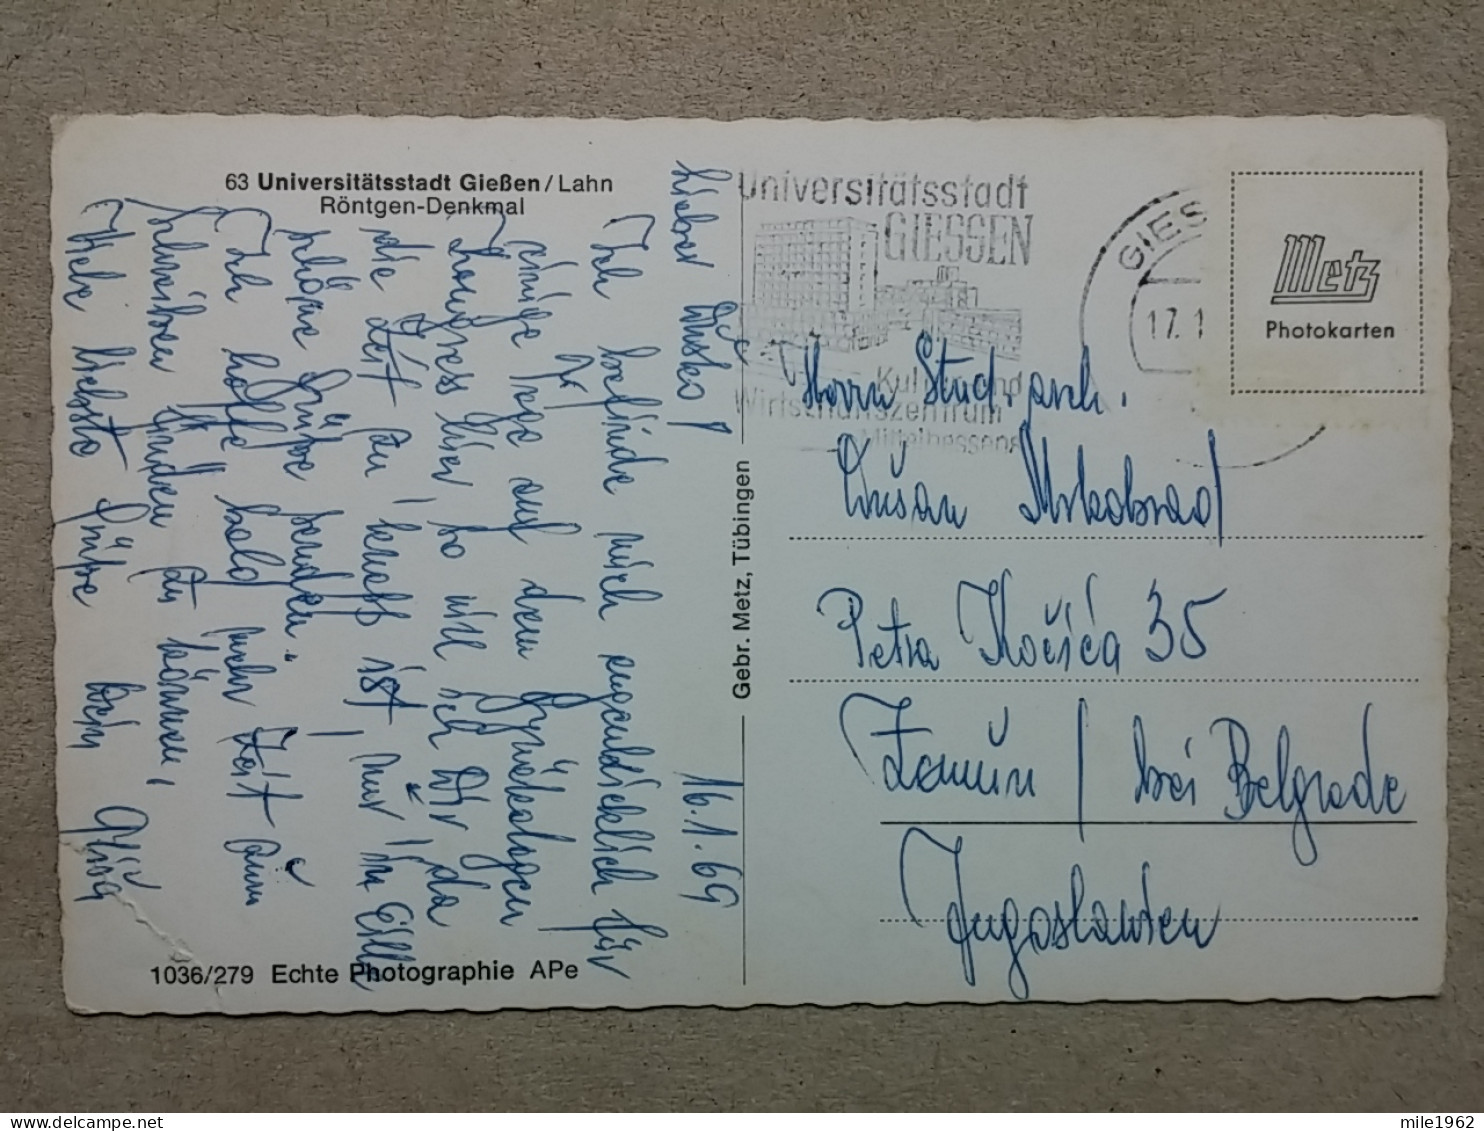 63 Universitätsstadt Gießen/Lahn
Röntgen-Denkmal
16.1.69
Lieber Dusko,
Ich befinde mich augenblicklich für
einige Tage auf dem Gynäkologen
Kongress hier, so will ich Dir, da
die Zeit zu knapp ist, nur in Eile
schöne Grüße senden.
Ich hoffe bald mehr Zeit zum
Schreiben finden zu können,
Alles liebste Grüße Dein
1036/279 Echte Photographie APe
Gebr. Metz, Tübingen
Universitätsstadt
GIESSEN
Kultur und
Wirtschaftszentrum
Mittelhessens
GIES
17.1
Metz
Photokarten
Herrn Stud. arch.
Dušan Mrkobrad
Petra Kočića 35
Zemun / bei Belgrade
Jugoslawien
mile1962